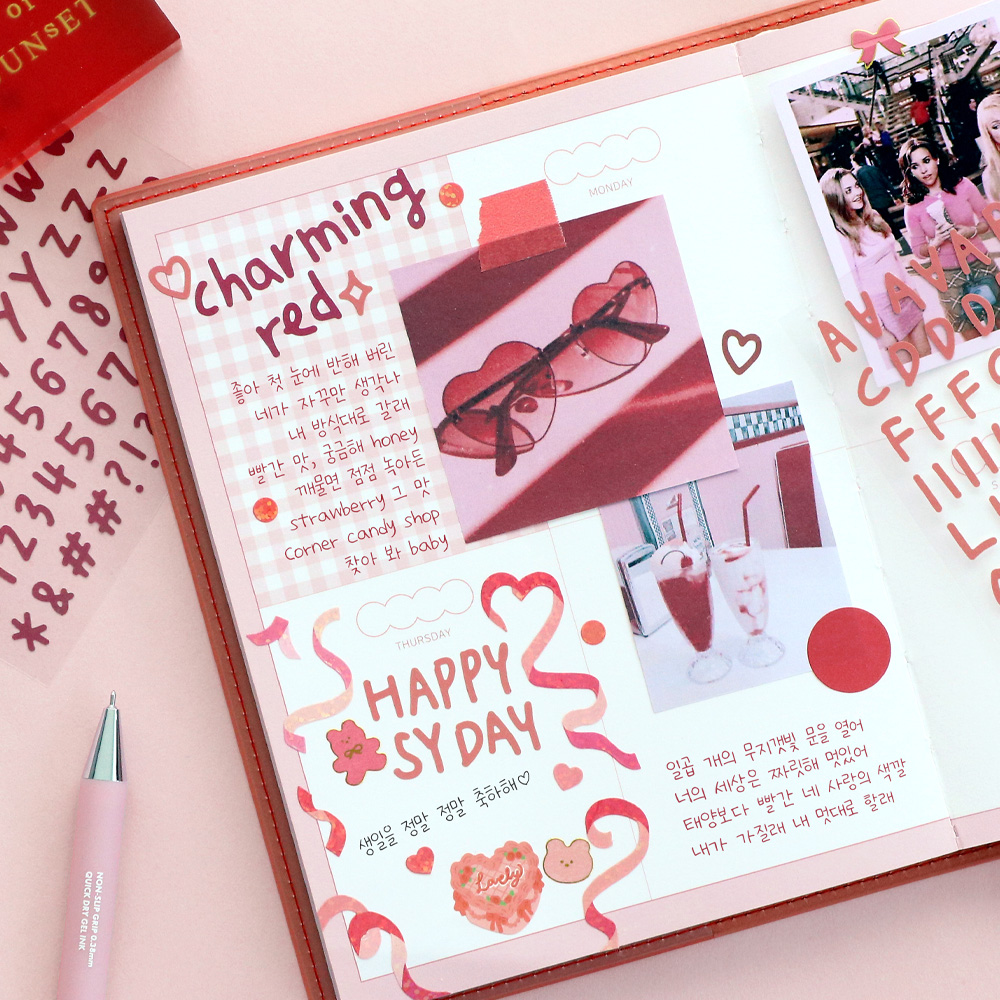 OF
SUNSET
charming
red
좋아 첫 눈에 반해 버린
네가 자꾸만 생각나
내 방식대로 갈래
빨간 맛, 궁금해 honey
깨물면 점점 녹아든
strawberry 그 맛
corner candy shop
찾아 봐 baby
MONDAY
THURSDAY
HAPPY
SY DAY
생일을 정말 정말 축하해♡
Lovely
일곱 개의 무지갯빛 문을 열어
너의 세상은 짜릿해 멋있어
태양보다 빨간 네 사랑의 색깔
내가 가질래 내 멋대로 할래
NON-SLIP GRIP 0.38mm
QUICK DRY GEL INK